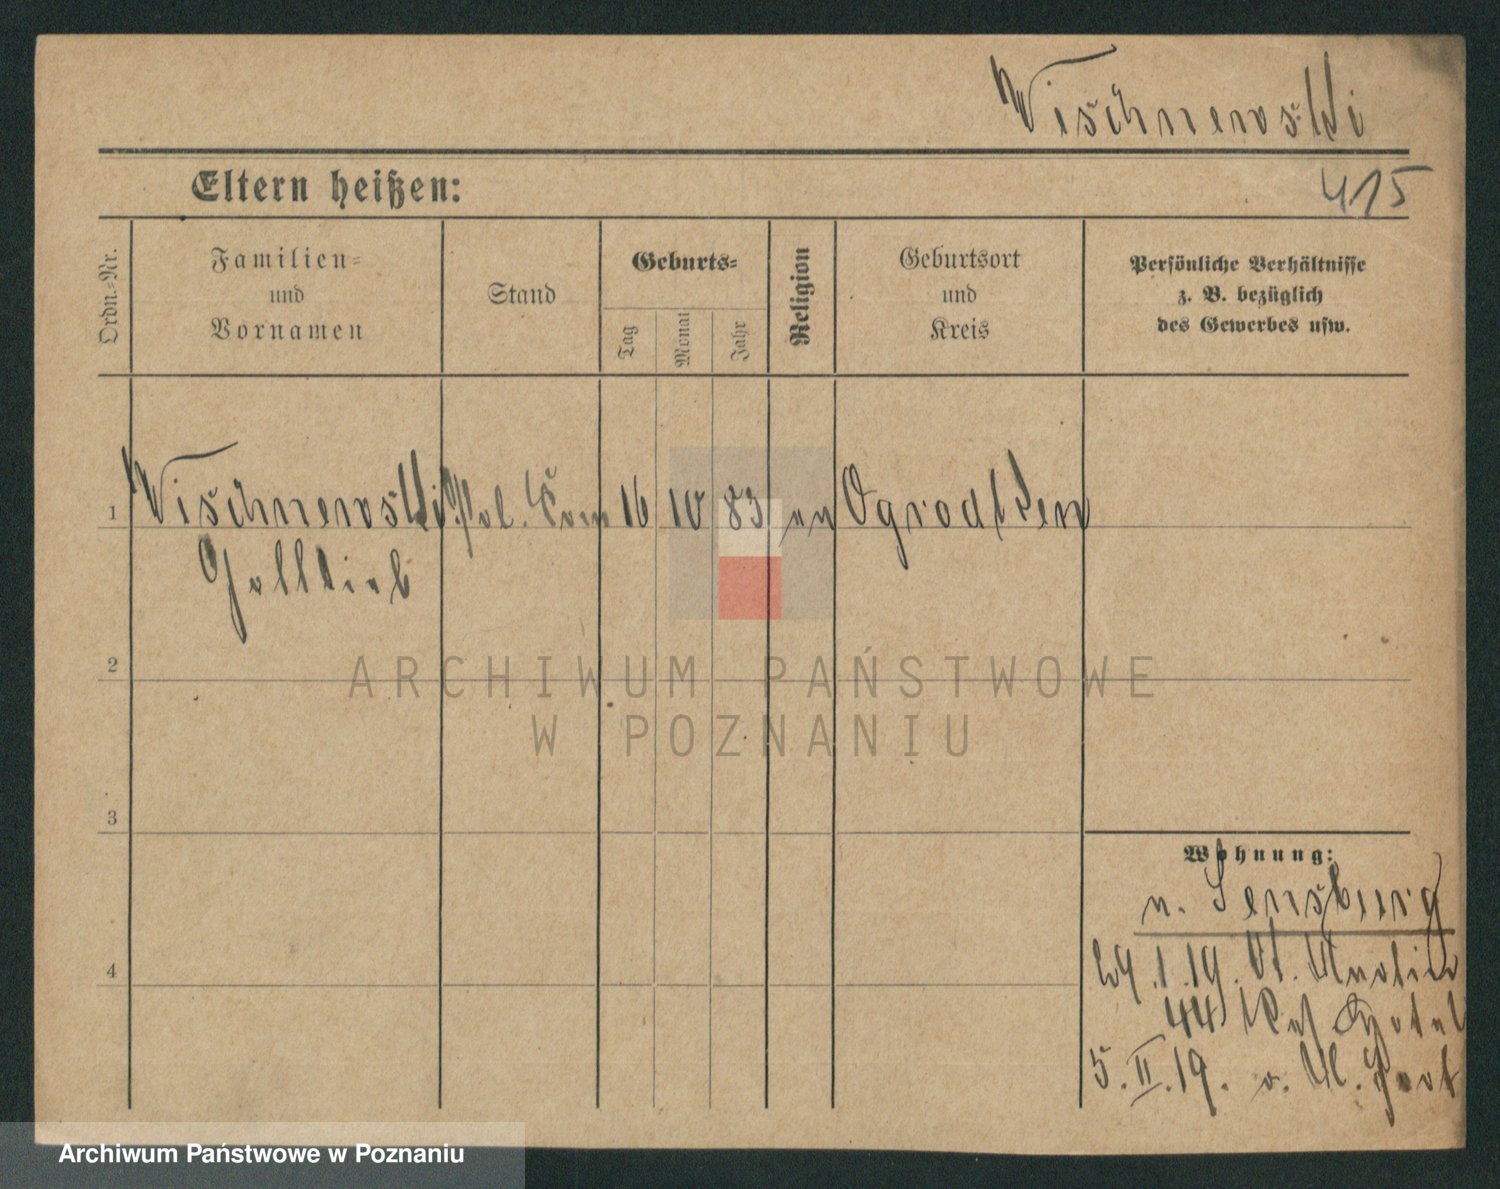 Wischnewski
415
Eltern heißen:
Ordn.=Nr.
Familien=
und
Vornamen
Stand
Geburts=
Tag
Monat
Jahr
Religion
Geburtsort
und
Kreis
Persönliche Verhältnisse
z. B. bezüglich
des Gewerbes usw.
1 Wischnewski Pol. Kom 16 10 83 ev Ogrodtken
Gottlieb
2
3
4
Wohnung:
n. Sensburg
29.1.19. St. Martin
44 Hotel
5.II.19. v. U. fort
ARCHIWUM PAŃSTWOWE
W POZNANIU
Archiwum Państwowe w Poznaniu